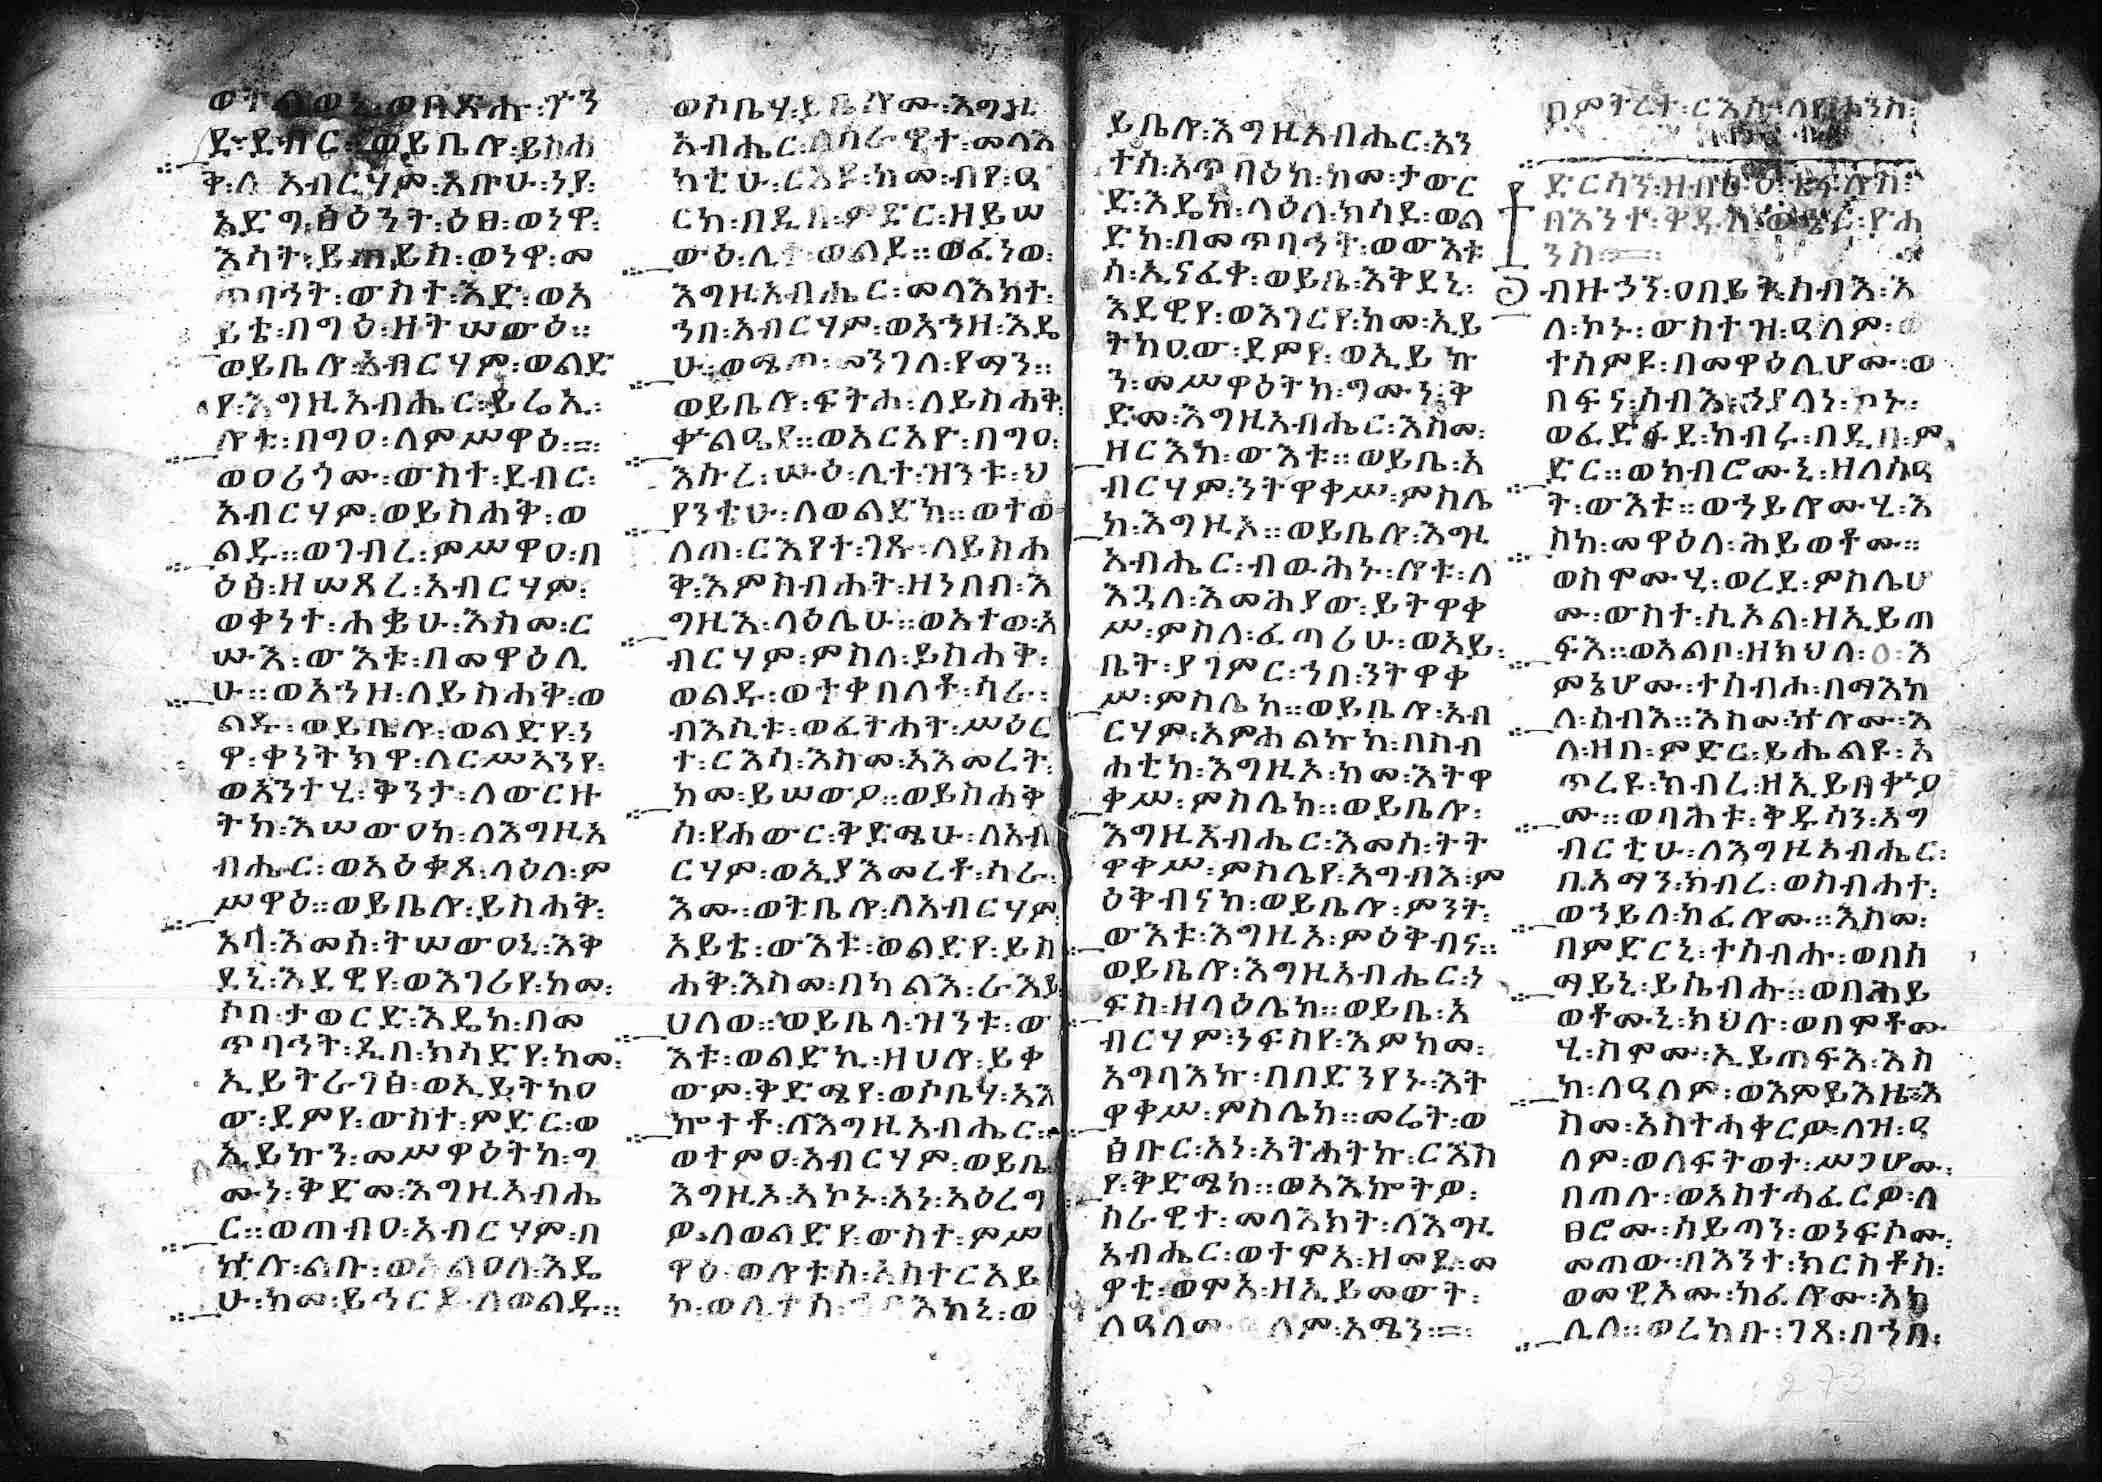 ደ፡ደብር፡ወይቤሎ፡ይስሐ
ቅ፡ለ አብርሃም፡አቡሁ፡ነየ፡
አድግ፡ፅዕንት፡ዕፀ፡ወነዋ፡
እሳት፡ይጠይስ፡ወነዋ፡መ
ጥባኅት፡ውስተ፡እድ፡ወአ
ይቴ፡በግዕ፡ዘትሠውዕ።
ወይቤሎ፡አብርሃም፡ወልድ
የ፡እግዚአብሔር፡ይሬኢ፡
ሎቱ፡በግዐ፡ለምሥዋዕ፡።
ወዐሪጎሙ፡ውስተ፡ደብር፡
አብርሃም፡ወይስሐቅ፡ወ
ልዱ።ወገብረ፡ምሥዋዐ፡በ
ዕፅ፡ዘሠጸረ፡አብርሃም፡
ወቀነተ፡ሐቌሁ፡እስመ፡ር
ሡእ፡ውእቱ፡በመዋዕሊ
ሁ።ወአኀዘ፡ለይስሐቅ፡ወ
ልዱ፡ወይቤሎ፡ወልድየ፡ነ
ዋ፡ቀነትክዋ፡ለርሥአንየ፡
ወአንተሂ፡ቅንታ፡ለውርዙ
ትከ፡እሠውዐከ፡ለእግዚአ
ብሔር፡ወአዕቀጾ፡ላዕለ፡ም
ሥዋዕ።ወይቤሎ፡ይስሐቅ፡
አባ፡እመስ፡ትሠውዐኒ፡እቅ
ደኒ፡እደዊየ፡ወእገሪየ፡ከመ፡
ሶበ፡ታወርድ፡እዴከ፡በመ
ጥባኅት፡ዲበ፡ክሳድየ፡ከመ፡
ኢይትራገፅ፡ወኢይትከዐ
ው፡ደምየ፡ውስተ፡ምድር፡ወ
ኢይኩን፡መሥዋዕትከ፡ግ
ሙነ፡ቅድመ፡እግዚአብሔ
ር።ወጠብዐ፡አብርሃም፡በ
ኵሉ፡ልቡ፡ወአልዐለ፡እዴ
ሁ፡ከመ፡ይኅርድ፡ለወልዱ።
ወሶቤሃ፡ይቤሎሙ፡እግዚ
አብሔር፡ለሰራዊተ፡መላእ
ክቲሁ፡ርእዩ፡ከመ፡ብየ፡ዓ
ርከ፡በዲበ፡ምድር፡ዘይሠ
ውዕ፡ሊተ፡ወልዶ።ወፈነወ፡
እግዚአብሔር፡መላእክተ፡
ኀበ፡አብርሃም፡ወአኀዘ፡እዴ
ሁ፡ወሜጦ፡መንገለ፡የማን።
ወይቤሎ፡ፍትሐ፡ለይስሐቅ፡
ቍልዔየ።ወአርአዮ፡በግዐ፡
እሱረ፡ሡዕ፡ሊተ፡ዝንቱ፡ህ
የንቴሁ፡ለወልድከ።ወተወ
ለጠ፡ርእየተ፡ገጹ፡ለይስሐ
ቅ፡እምስብሐት፡ዘነበበ፡እ
ግዚእ፡ላዕሌሁ።ወአተወ፡አ
ብርሃም፡ምስለ፡ይስሐቅ፡
ወልዱ፡ወተቀበለቶ፡ሳራ፡
ብእሲቱ፡ወፈትሐት፡ሥዕር
ተ፡ርእሳ፡እስመ፡ኣእመረት፡
ከመ፡ይሠውዖ።ወይስሐቅ
ስ፡የሐውር፡ቅድሜሁ፡ለአብ
ርሃም፡ወኢያእመረቶ፡ሳራ፡
እሙ፡ወትቤሎ፡ለአብርሃም፡
አይቴ፡ውእቱ፡ወልድየ፡ይስ
ሐቅ፡እስመ፡በካልእ፡ራእይ፡
ሀለወ።ወይቤላ፡ዝንቱ፡ው
እቱ፡ወልድኪ፡ዘሀሎ፡ይቀ
ውም፡ቅድሜየ፡ወሶቤሃ፡አእ
ኰተቶ፡ለእግዚአብሔር።
ወተምዐ፡አብርሃም፡ወይቤ
እግዚኦ፡አኮኑ፡አነ፡ኣዕረግ
ዎ፡ለወልድየ፡ውስተ፡ምሥ
ዋዕ፡ወሎቱስ፡አስተርአይ
ይቤሎ፡እግዚአብሔር፡አን
ተስ፡አጥባዕከ፡ከመ፡ታውር
ድ፡እዴከ፡ላዕለ፡ክሳደ፡ወል
ድከ፡በመጥባኅት፡ወውእቱ
ስ፡ኢናፈቀ፡ወይቤ፡እቅደኒ፡
እደዊየ፡ወእገርየ፡ከመ፡ኢይ
ትከዐው፡ደምየ፡ወኢይኩ
ን፡መሥዋዕትከ፡ግሙነ፡ቅ
ድመ፡እግዚአብሔር፡እስመ፡
ዘርእከ፡ውእቱ።ወይቤ፡አ
ብርሃም፡ንትዋቀሥ፡ምስሌ
ከ፡እግዚኦ።ወይቤሎ፡እግዚ
አብሔር፡ብውሕኑ፡ሎቱ፡ለ
እጓለ፡እመሕያው፡ይትዋቀ
ሥ፡ምስለ፡ፈጣሪሁ፡ወአይ፡
ቤት፡ያገምር፡ኀበ፡ንትዋቀ
ሥ፡ምስሌከ።ወይቤሎ፡አብ
ርሃም፡አምሐልኩከ፡በስብ
ሐቲከ፡እግዚኦ፡ከመ፡እትዋ
ቀሥ፡ምስሌከ።ወይቤሎ፡
እግዚአብሔር፡እመስ፡ትት
ዋቀሥ፡ምስሌየ፡አግብእ፡ም
ዕቅብናከ፡ወይቤሎ፡ምንት፡
ውእቱ፡እግዚእ፡ምዕቅብና።
ወይቤሎ፡እግዚአብሔር፡ነ
ፍስ፡ዘላዕሌከ።ወይቤ፡አ
ብርሃም፡ነፍስየ፡እምከመ፡
አግባእኩ፡በበድንየኑ፡እት
ዋቀሥ፡ምስሌከ።መሬት፡ወ
ፀቡር፡አነ፡አትሐትኩ፡ርእስ
የ፡ቅድሜከ።ወኣእኰትዎ፡
ሰራዊተ፡መላእክት፡ለእግዚ
አብሔር፡ወተሞአ፡ዘመደ፡መ
ዋቲ፡ወሞአ፡ዘኢይመውት፡
በምትረተ፡ርእሱ፡ለዮሐንስ፡
ድርሳን፡ዘብፁዕ፡
በእንተ፡ቅዱስ፡ዮሐ
ንስ
ብዙኃን፡ዐበይት፡ሰብእ፡እ
ለ፡ኮኑ፡ውስተ ዝ፡ዓለም፡ወ
ተሰምዩ፡በመዋዕሊሆሙ፡ወ
በፍና፡ሰብእ፡ኀያላነ፡ኮኑ፡
ወፈድፋደ፡ከብሩ፡በዲበ፡ም
ድር።ወክብሮሙኒ፡ዘለሰዓ
ት፡ውእቱ።ወኀይሎሙሂ፡እ
ስከ፡መዋዕለ፡ሕይወቶሙ።
ወስሞሙሂ፡ወረደ፡ምስሌሆ
ሙ፡ውስተ፡ሲኦል፡ዘኢይጠ
ፍእ።ወአልቦ፡ዘክህለ፡ እ
ምኔሆሙ፡ተሰብሖ፡በማእከ
ለ፡ሰብእ።እስመ፡ኵሎሙ፡እ
ለ፡ዘበ፡ምድር፡ይሔልዩ፡አ
ጥረዩ፡ክብረ፡ዘኢይበቍዖ
ሙ።ወባሕቱ፡ቅዱሳን፡አግ
ብርቲሁ፡ለእግዚአብሔር፡
በአማን፡ክብረ፡ወስብሐተ፡
ወኀይለ፡ከፈሎሙ።እስመ፡
በምድርኒ፡ተሰብሑ፡ወበሰ
ማይኒ፡ይሴብሑ።ወበሕይ
ወቶሙኒ፡ክህሉ፡ወበሞቶሙ
ሂ፡ስሞሙ፡ኢይጠፍእ፡እስ
ከ፡ለዓለም፡ወእምይእዜ፡እ
ስመ፡አስተሓቀርዎ፡ለዝ፡ዓ
ለም፡ወለፍትወተ፡ሥጋሆሙ፡
በጠሉ፡ወአስተሓፈርዎ፡ለ
ፀሮሙ፡ሰይጣን፡ወነፍሶሙ፡
መጠው፡በእንተ፡ክርስቶስ፡
ወመዊኦሙ፡ከፈሎሙ፡አክ
ሊለ።ወረከቡ፡ገጸ፡በኀበ፡